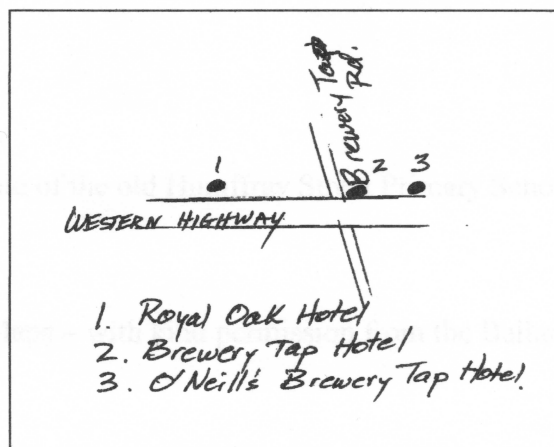 Brewery Tap
Rd.
1
2
3
WESTERN HIGHWAY
1. Royal Oak Hotel
2. Brewery Tap Hotel
3. O'Neill's Brewery Tap Hotel.